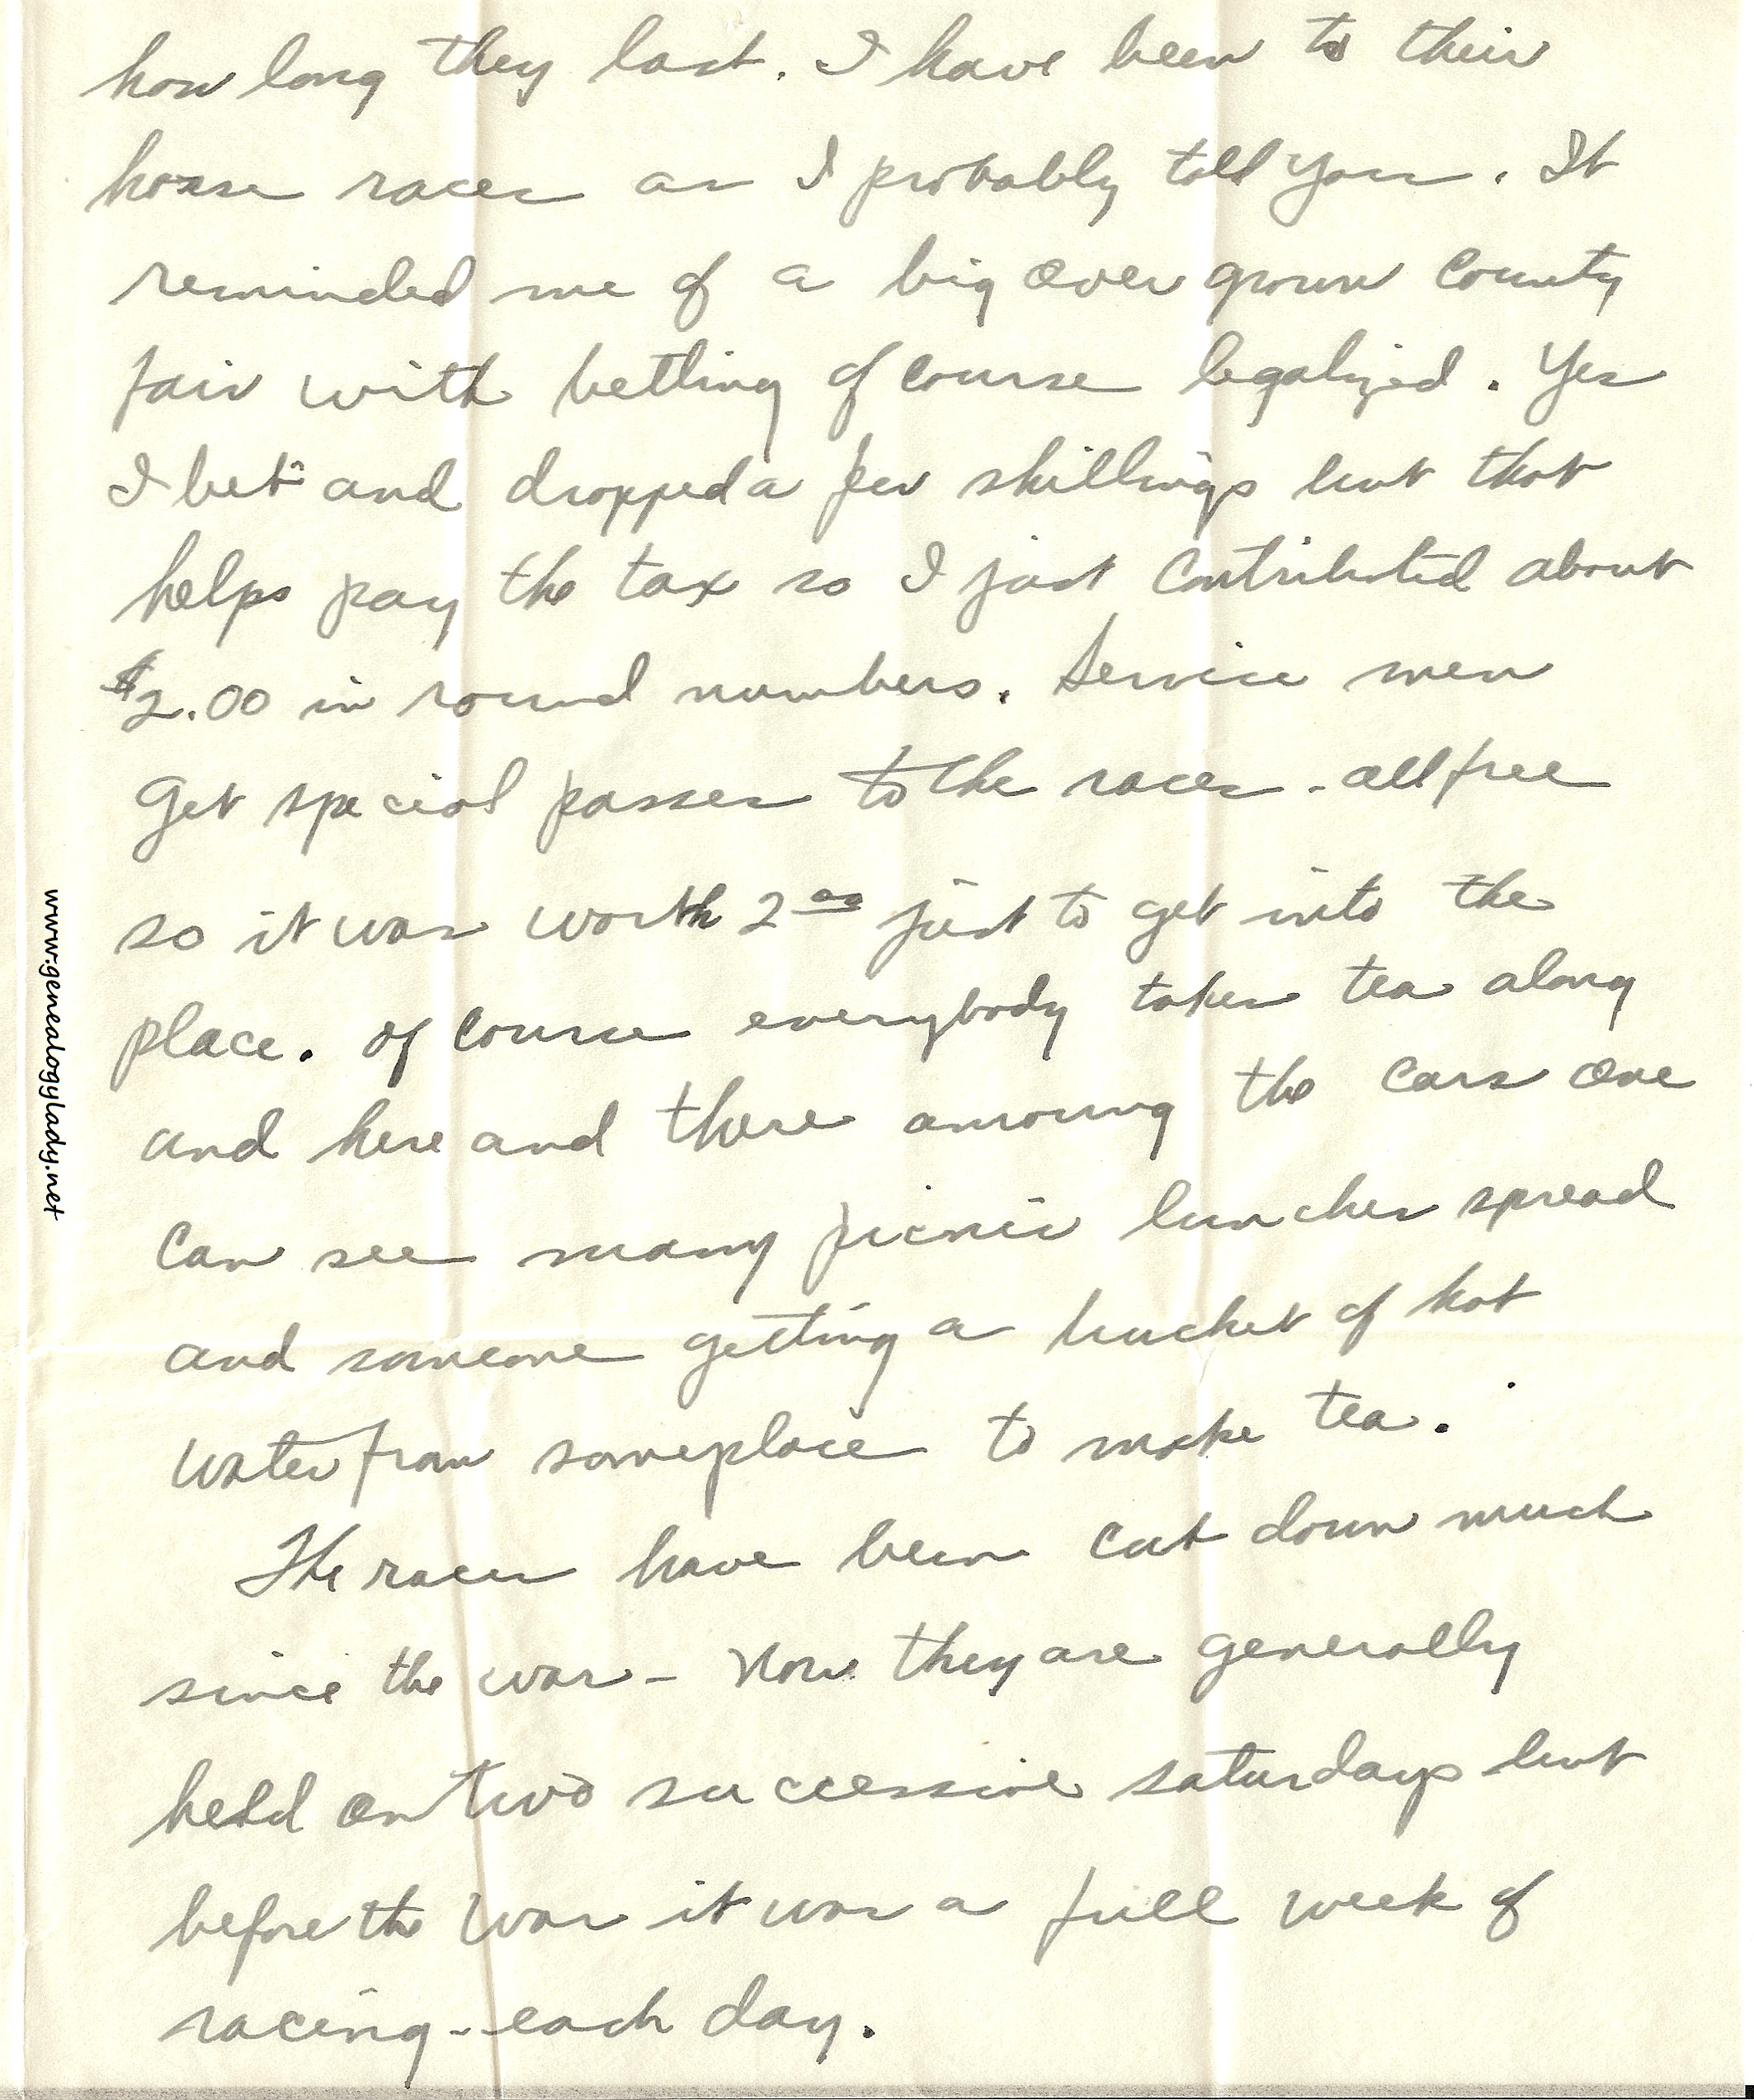 how long they last. I have been to their
horse races as I probably told you. It
reminded me of a big over grown County
fair with betting of course legalized. Yes
I bet and dropped a few shillings but that
helps pay the tax so I just contributed about
$2.00 in round numbers. Service men
get special passes to the races - all free
so it was worth 2 00 just to get into the
place. Of course everybody takes tea along
and here and there amoung the cars one
can see many picnic lunches spread
and someone getting a bucket of hot
water from someplace to make tea.
The races have been cut down much
since the war - Now they are generally
held on two successive saturdays but
before the war it was a full week of
racing - each day.
www.genealogylady.net